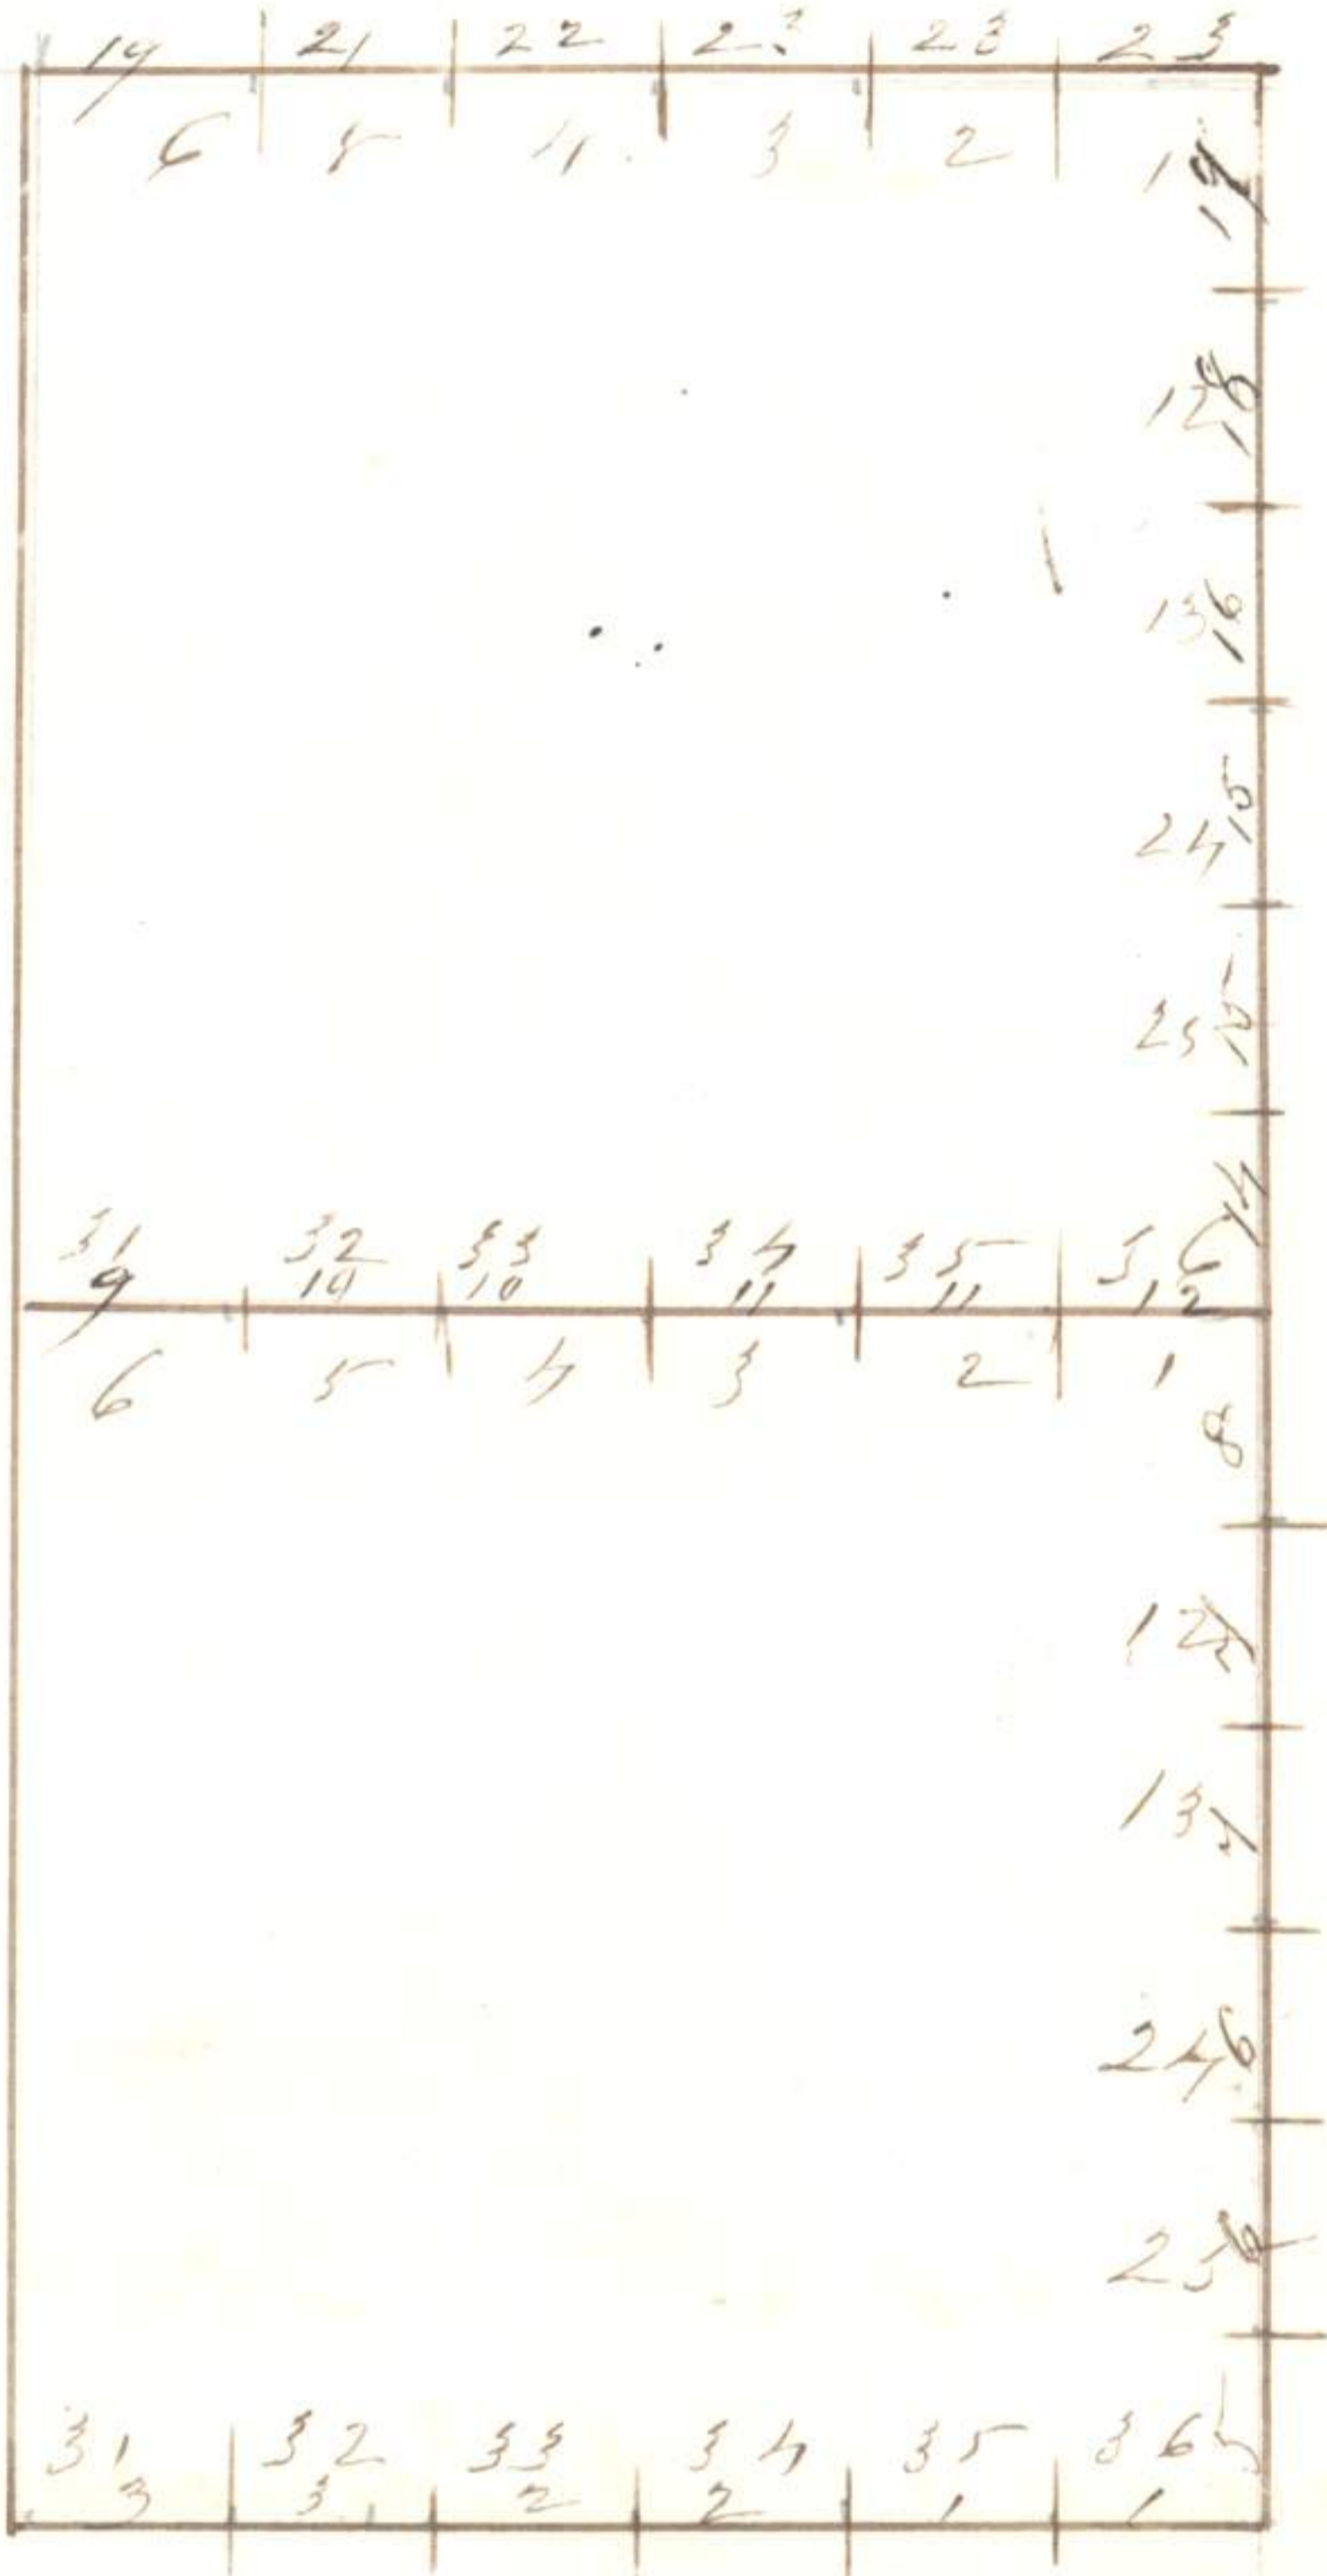 19 21 22 23 23 23
6 5 4 3 2 1
17
12 18
13 16
24 15
25
14
31 32 33 34 35 36
9 10 10 11 11 12
6 5 4 3 2 1
8
12 7
13 7
24 6
25 6
5
31 32 33 34 35 36
3 3 2 2 1 1